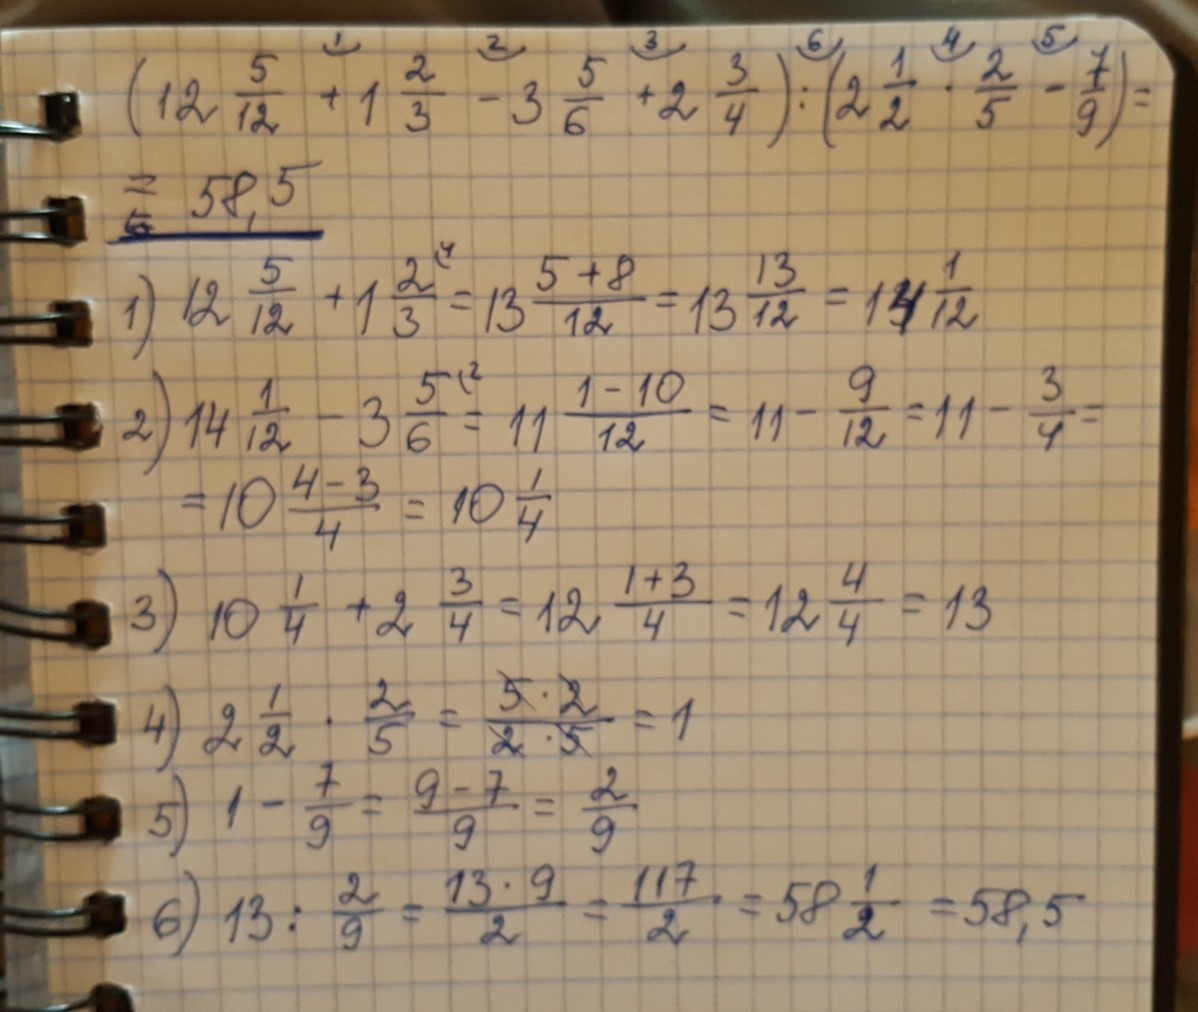 (12 5/12 + 1 2/3 - 3 5/6 + 2 3/4) : (2 1/2 · 2/5 - 7/9) =
= 58,5
1) 12 5/12 + 1 2/3 = 13 (5+8)/12 = 13 13/12 = 14 1/12
2) 14 1/12 - 3 5/6 = 11 (1-10)/12 = 11 - 9/12 = 11 - 3/4 =
= 10 (4-3)/4 = 10 1/4
3) 10 1/4 + 2 3/4 = 12 (1+3)/4 = 12 4/4 = 13
4) 2 1/2 · 2/5 = (5·2)/(2·5) = 1
5) 1 - 7/9 = (9-7)/9 = 2/9
6) 13 : 2/9 = (13·9)/2 = 117/2 = 58 1/2 = 58,5